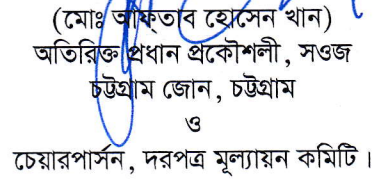 (মোঃ আফ্তাব হোসেন খান)
অতিরিক্ত প্রধান প্রকৌশলী, সওজ
চট্টগ্রাম জোন, চট্টগ্রাম
ও
চেয়ারপার্সন, দরপত্র মূল্যায়ন কমিটি।